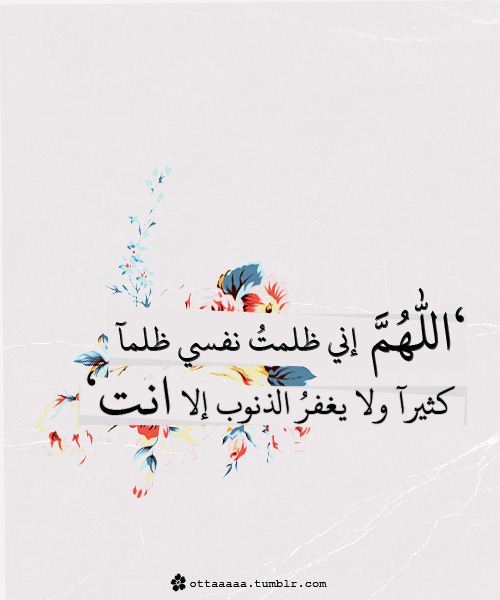 ‘اللّٰهُمَّ إني ظلمتُ نفسي ظلمآ
كثيرآ ولا يغفرُ الذنوب إلا انت‘
ottaaaaa.tumblr.com